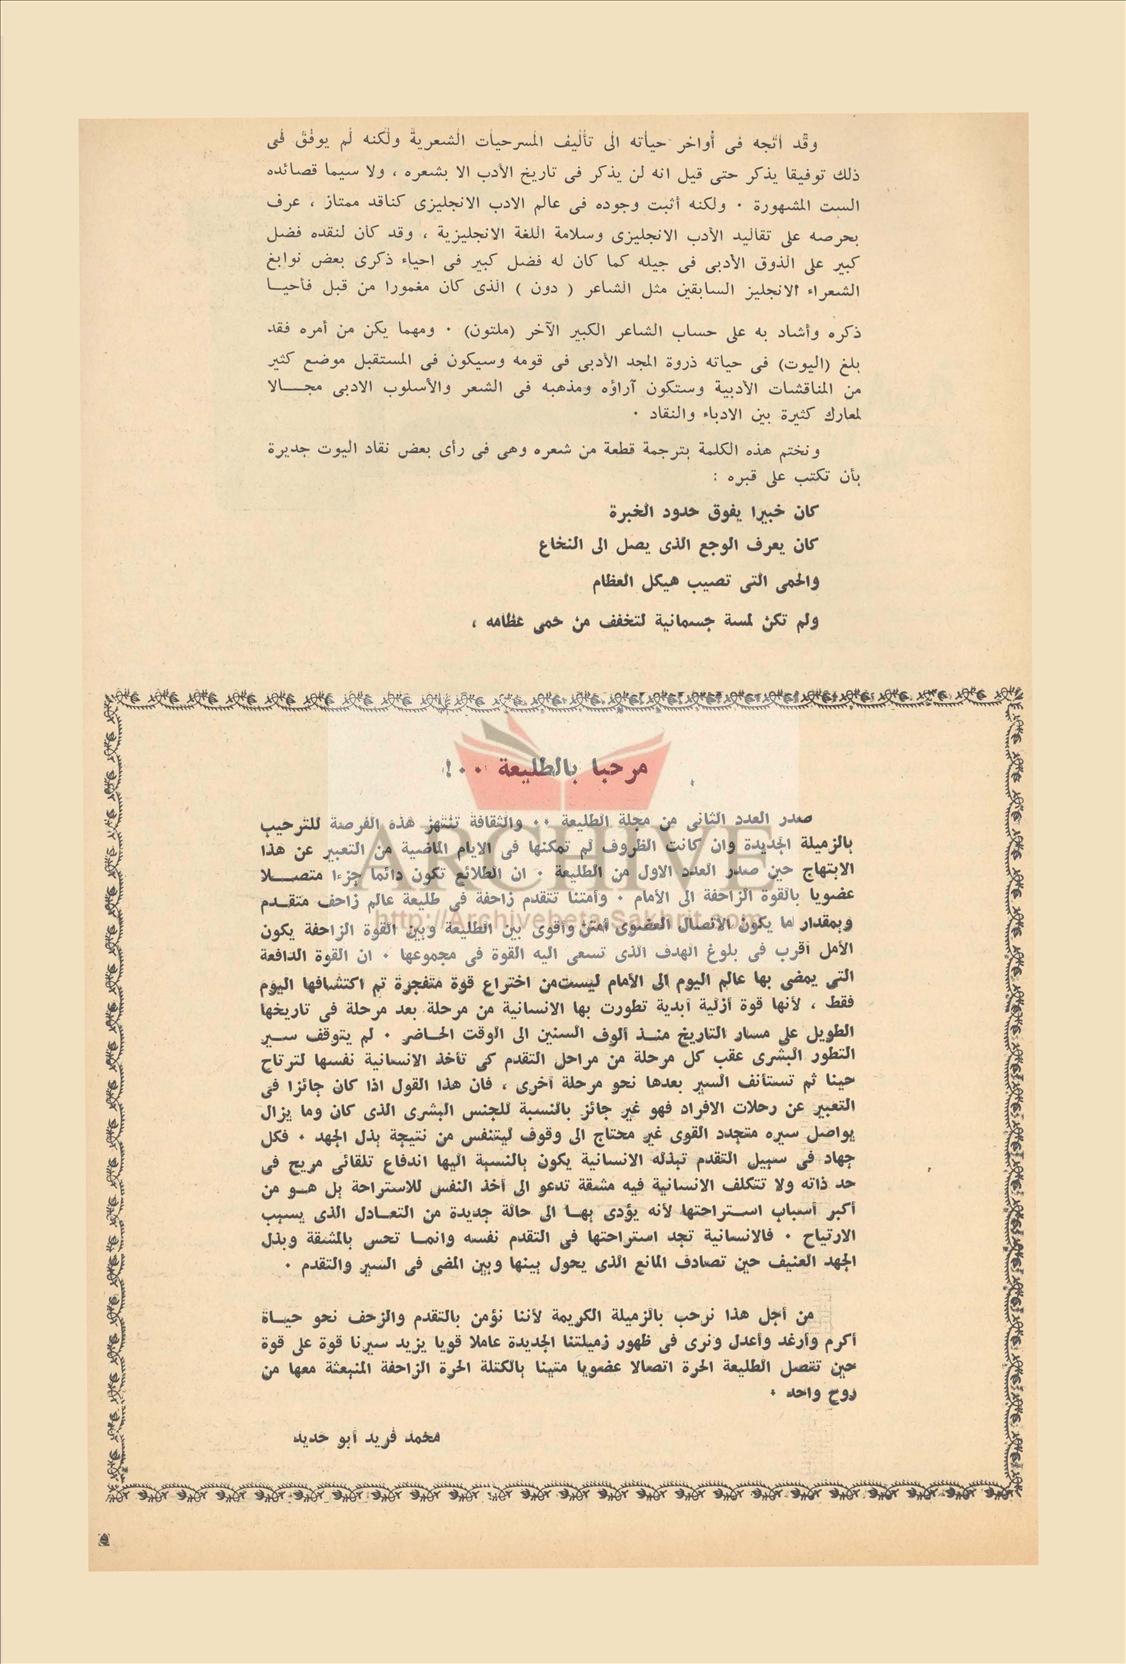 وقد اتجه فى أواخر حياته الى تأليف المسرحيات الشعرية ولكنه لم يوفق فى
ذلك توفيقا يذكر حتى قيل انه لن يذكر فى تاريخ الأدب الا بشعره ، ولا سيما قصائده
الست المشهورة ٠ ولكنه أثبت وجوده فى عالم الادب الانجليزى كناقد ممتاز ، عرف
بحرصه على تقاليد الأدب الانجليزى وسلامة اللغة الانجليزية ، وقد كان لنقده فضل
كبير على الذوق الأدبى فى جيله كما كان له فضل كبير فى احياء ذكرى بعض نوابغ
الشعراء الانجليز السابقين مثل الشاعر ( دون ) الذى كان مغمورا من قبل فأحيـا
ذكره وأشاد به على حساب الشاعر الكبير الآخر (ملتون) ٠ ومهما يكن من أمره فقد
بلغ (اليوت) فى حياته ذروة المجد الأدبى فى قومه وسيكون فى المستقبل موضع كثير
من المناقشات الأدبية وستكون آراؤه ومذهبه فى الشعر والأسلوب الادبى مجـــالا
لمعارك كثيرة بين الادباء والنقاد ٠
ونختم هذه الكلمة بترجمة قطعة من شعره وهى فى رأى بعض نقاد اليوت جديرة
بأن تكتب على قبره :
كان خبيرا يفوق حدود الخبرة
كان يعرف الوجع الذى يصل الى النخاع
والحمى التى تصيب هيكل العظام
ولم تكن لمسة جسمانية لتخفف من حمى عظامه ،
مرحبا بالطليعة ٠٠!
صدر العدد الثانى من مجلة الطليعة ٠٠ والثقافة تنتهز هذه الفرصة للترحيب
بالزميلة الجديدة وان كانت الظروف لم تمكنها فى الايام الماضية من التعبير عن هذا
الابتهاج حين صدر العدد الاول من الطليعة ٠ ان الطلائع تكون دائما جزءا متصـــلا
عضويا بالقوة الزاحفة الى الأمام ٠ وأمتنا تتقدم زاحفة فى طليعة عالم زاحف متقـدم
وبمقدار ما يكون الاتصال العضوى أمتن وأقوى بين الطليعة وبين القوة الزاحفة يكون
الأمل أقرب فى بلوغ الهدف الذى تسعى اليه القوة فى مجموعها ٠ ان القوة الدافعة
التى يمضى بها عالم اليوم الى الأمام ليست من اختراع قوة متفجرة تم اكتشافها اليوم
فقط ، لأنها قوة أزلية أبدية تطورت بها الانسانية من مرحلة بعد مرحلة فى تاريخها
الطويل على مسار التاريخ منــذ ألوف السنين الى الوقت الحـاضر ٠ لم يتوقف سـير
التطور البشرى عقب كل مرحلة من مراحل التقدم كى تأخذ الانسانية نفسها لترتاح
حينا ثم تستأنف السير بعدها نحو مرحلة أخرى ، فان هذا القول اذا كان جائزا فى
التعبير عن رحلات الافراد فهو غير جائز بالنسبة للجنس البشرى الذى كان وما يزال
يواصل سيره متجدد القوى غير محتاج الى وقوف ليتنفس من نتيجة بذل الجهد ٠ فكل
جهاد فى سبيل التقدم تبذله الانسانية يكون بالنسبة اليها اندفاع تلقائى مريح فى
حد ذاته ولا تتكلف الانسانية فيه مشقة تدعو الى أخذ النفس للاستراحة بل هـو من
أكبر أسباب اسـتراحتها لأنه يؤدى بهـا الى حالة جديدة من التعـادل الذى يسبب
الارتياح ٠ فالانسانية تجد استراحتها فى التقدم نفسه وانمـا تحس بالمشقة وبذل
الجهد العنيف حين تصادف المانع الذى يحول بينها وبين المضى فى السير والتقدم ٠
من أجل هذا نرحب بالزميلة الكريمة لأننا نؤمن بالتقدم والزحف نحو حيـاة
أكرم وأرغد وأعدل ونرى فى ظهور زميلتنا الجديدة عاملا قويا يزيد سيرنا قوة على قوة
حين تتصل الطليعة الحرة اتصالا عضويا متينا بالكتلة الحرة الزاحفة المنبعثة معها من
روح واحد ٠
محمد فريد أبو حديد
ARCHIVE
http://Archivebeta.Sakhrit.com
٥